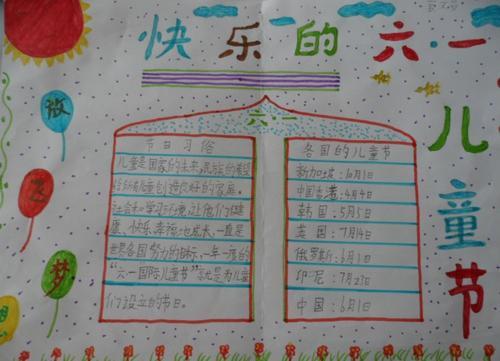 快乐的六·一
儿童节
放
飞
梦
六·一
节日习俗
儿童是国家的未来,民族的希望
给所有儿童创造良好的家庭、
社会和学习环境,让他们健
康、快乐、幸福地成长,一直是
世界各国努力的目标,一年一度的
“六一国际儿童节”就是为儿童
们设立的节日。
各国的儿童节
新加坡:10月1日
中国香港:4月4日
韩国:5月5日
美国:7月14日
俄罗斯:6月1日
印尼:7月23日
中国:6月1日